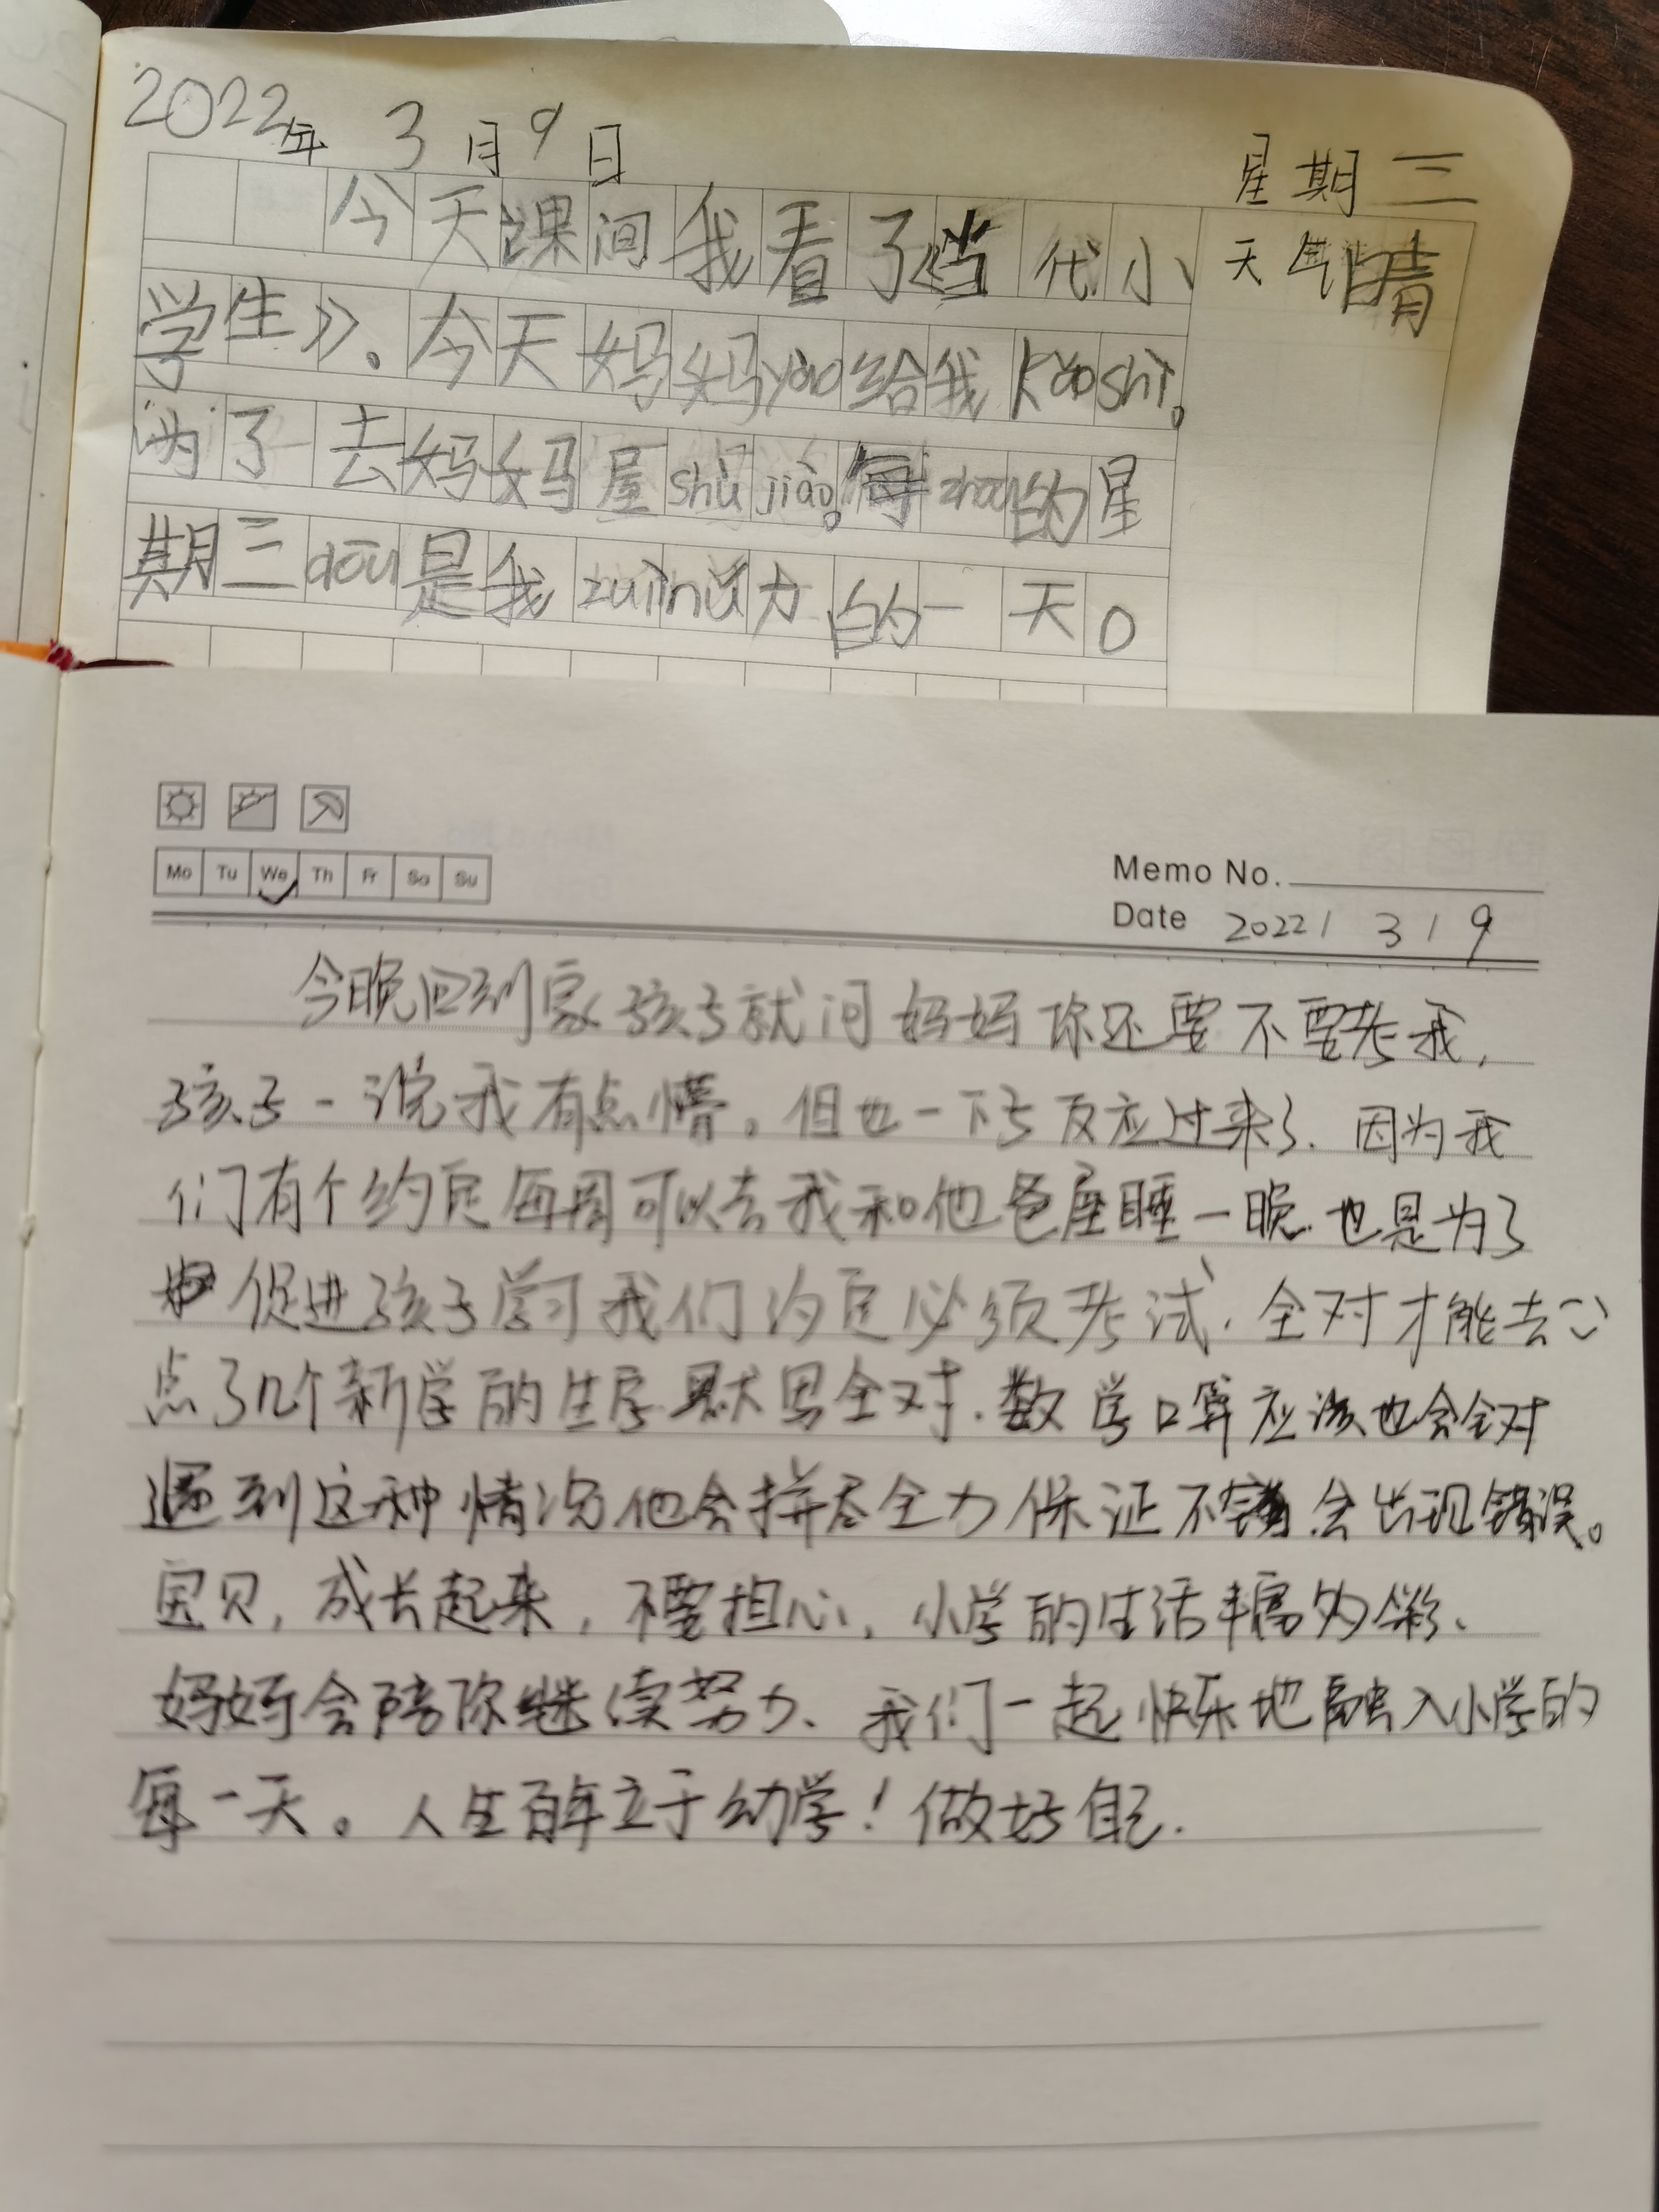 2022年 3月9日 星期三
今天课间我看了《当代小 天气晴
学生》。今天妈妈yào给我kǎoshì。
为了去妈妈屋shuì jiào。每zhōu的星
期三dōu是我zuì nǔ力的一天。
Mo Tu We Th Fr Sa Su
Memo No.
Date 2022 / 3 / 9
今晚回到家孩子就问妈妈你还要不要考我,
孩子一说我有点懵。但也一下子反应过来了.因为我
们有个约定每周可以去我和他爸屋睡一晚.也是为了
促进孩子学习我们约定必须考试.全对才能去
点了几个新学的生字默写全对.数学口算应该也会全对
遇到这种情况他会拼尽全力保证不会出现错误。
宝贝,成长起来,不要担心,小学的生活丰富多彩、
妈妈会陪你继续努力、我们一起快乐地融入小学的
每一天。人生百年立于幼学!做好自己.